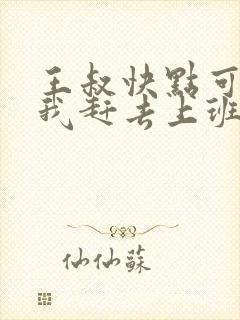 王叔快點可
我赶去上班
仙仙蘇